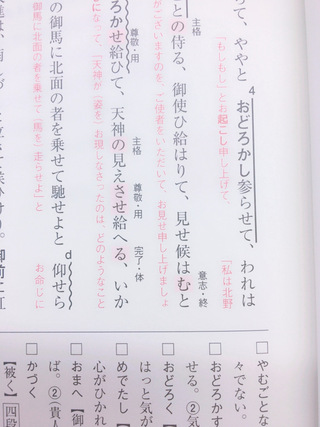 って、ややと
4
おどろかし参らせて、われは
「もしもし」とお起こし申し上げて、
「私は北野
主格
ことの侍る、御使ひ給はりて、見せ候はむと
意志・終
がございますのを、ご使者をいただいて、お見せ申し上げましょ
尊敬・用
ろかせ給ひて、天神の見えさせ給へる、いか
主格
尊敬・用
完了・体
になって、「天神が(姿を)お現しなさったのは、どのような
の御馬に北面の者を乗せて馳せよと
d
仰せら
御馬に北面の者を乗せて(馬を)走らせよ」と
お命じに
□ やむごとな
々でない。
□ おどろかす
せる。②気
□ おどろく【
はっと気が
□ めでたし【
心がひかれ
□ おまへ【御
ば。②(貴人
□ かづく
【被く】(四段